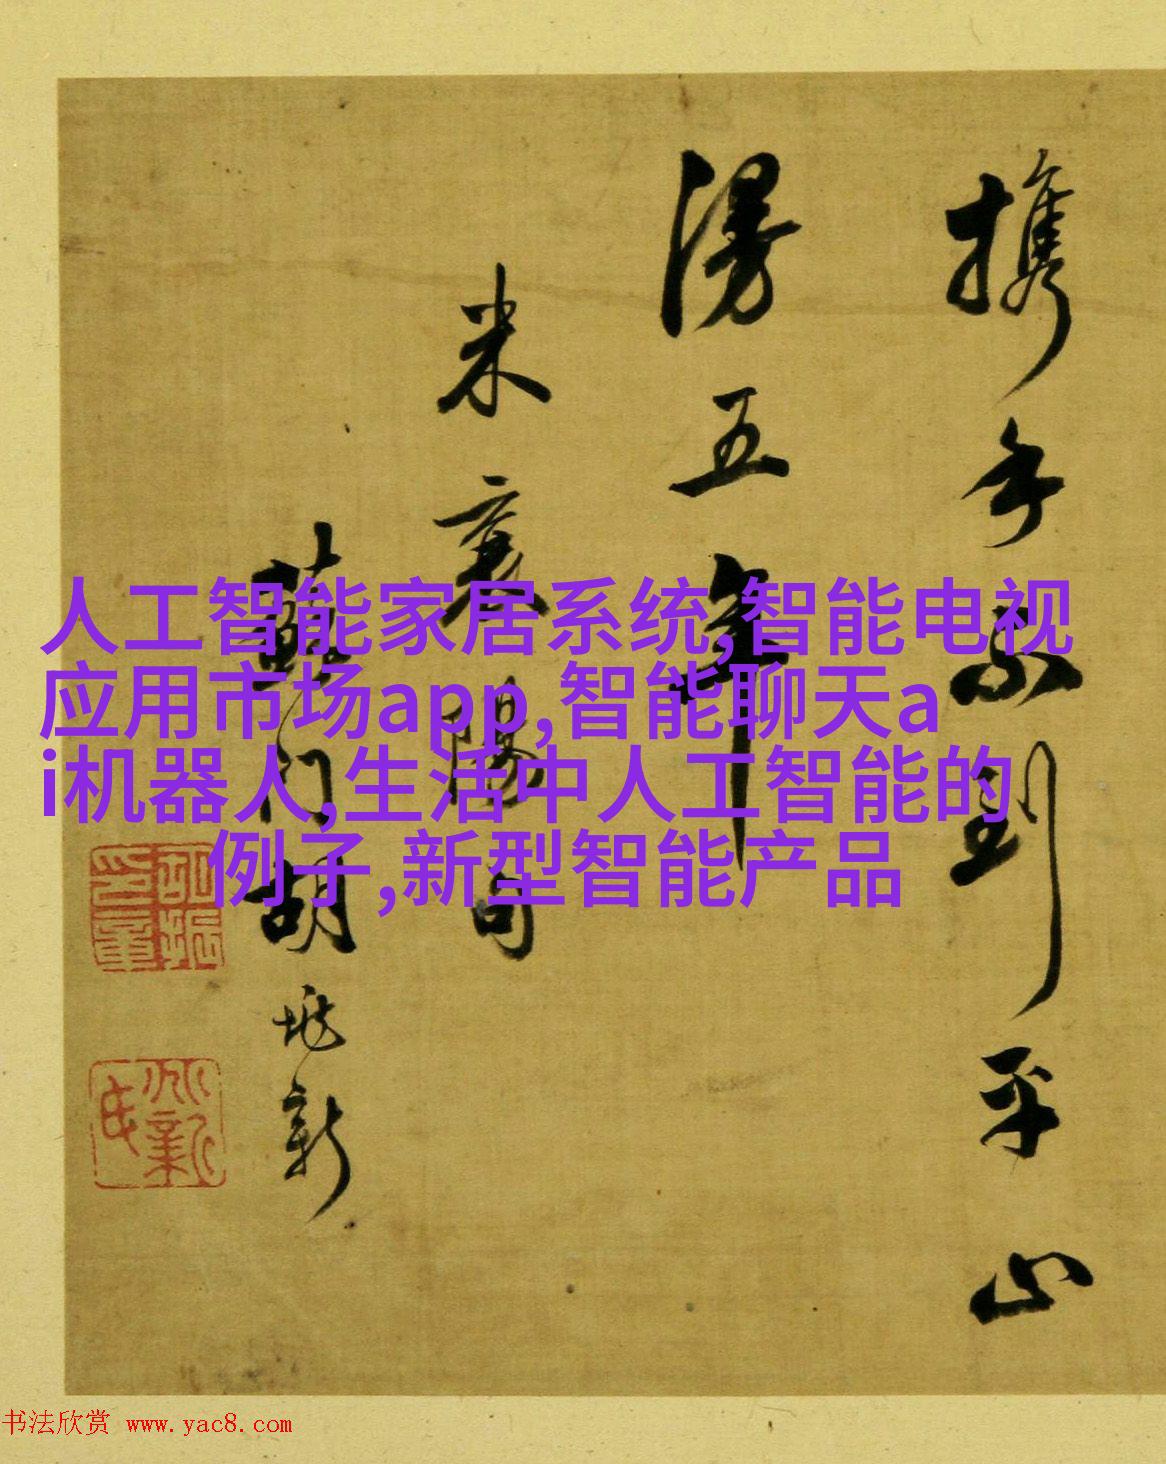 攜手不到平山
漫五年
米襄陽句
蘇門胡兆新
人工智能家居系统,智能电视
应用市场app,智能聊天a
i机器人,生活中人工智能的
例子,新型智能产品
书法欣赏 www.yac8.com